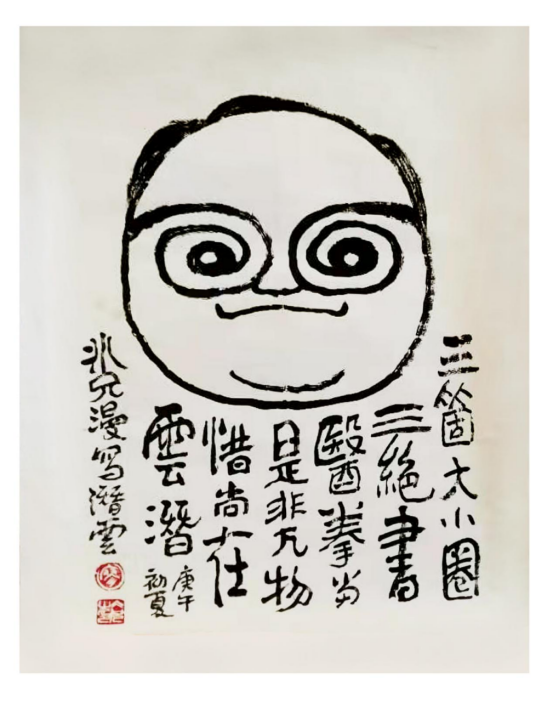 三箇大小圈
三絕書
醫拳当
日是非凡物
惜尚在
雲潛
庚午
初夏
非兄漫写潛雲